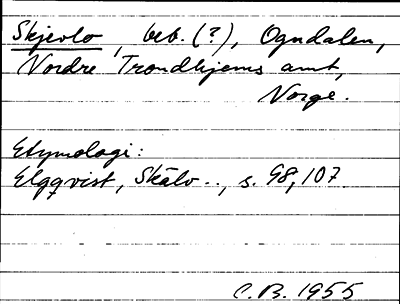 Skjevlo, beb. (?), Ogndalen,
Nordre Trondhjems amt,
Norge.
Etymologi:
Elgqvist, Skälv.., s. 98, 107
C.B. 1955